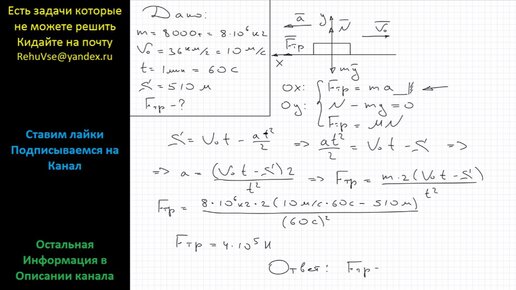 Есть задачи которые
не можете решить
Кидайте на почту
RehuVse@yandex.ru
Ставим лайки
Подписываемся на
Канал
Остальная
Информация в
Описании канала
Дано:
m = 8000т = 8·10⁶ кг
V₀ = 36 км/ч = 10 м/с
t = 1 мин = 60 с
S = 510 м
Fтр - ?
a y N V₀
Fтр
x mg
Ox: Fтр = ma
Oy: N - mg = 0
Fтр = MN
S = V₀t - at²/2 => at²/2 = V₀t - S =>
=> a = (V₀t - S)2/t² => Fтр = m·2(V₀t - S)/t²
Fтр = 8·10⁶кг·2(10м/с·60с - 510м)/(60с)²
Fтр = 4·10⁵ Н
Ответ: Fтр -